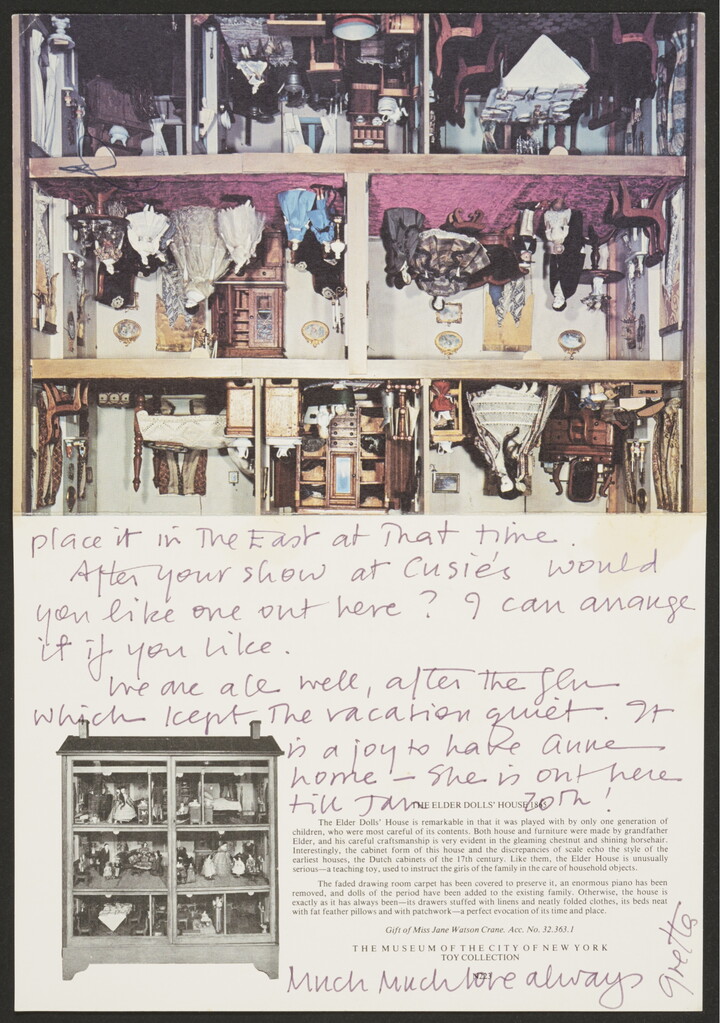 place it in The East at That time.
After your show at Cusie's would
you like one out here? I can arrange
it if you like.
We are all well, after the flu
which kept The vacation quiet. It
is a joy to have Anne
home – She is out here
till Jan 20th!
THE ELDER DOLLS' HOUSE 1865
The Elder Dolls' House is remarkable in that it was played with by only one generation of
children, who were most careful of its contents. Both house and furniture were made by grandfather
Elder, and his careful craftsmanship is very evident in the gleaming chestnut and shining horsehair.
Interestingly, the cabinet form of this house and the discrepancies of scale echo the style of the
earliest houses, the Dutch cabinets of the 17th century. Like them, the Elder House is unusually
serious—a teaching toy, used to instruct the girls of the family in the care of household objects.
The faded drawing room carpet has been covered to preserve it, an enormous piano has been
removed, and dolls of the period have been added to the existing family. Otherwise, the house is
exactly as it has always been—its drawers stuffed with linens and neatly folded clothes, its beds neat
with fat feather pillows and with patchwork—a perfect evocation of its time and place.
Gift of Miss Jane Watson Crane. Acc. No. 32.363.1
THE MUSEUM OF THE CITY OF NEW YORK
TOY COLLECTION
Much Much love always
Gretta